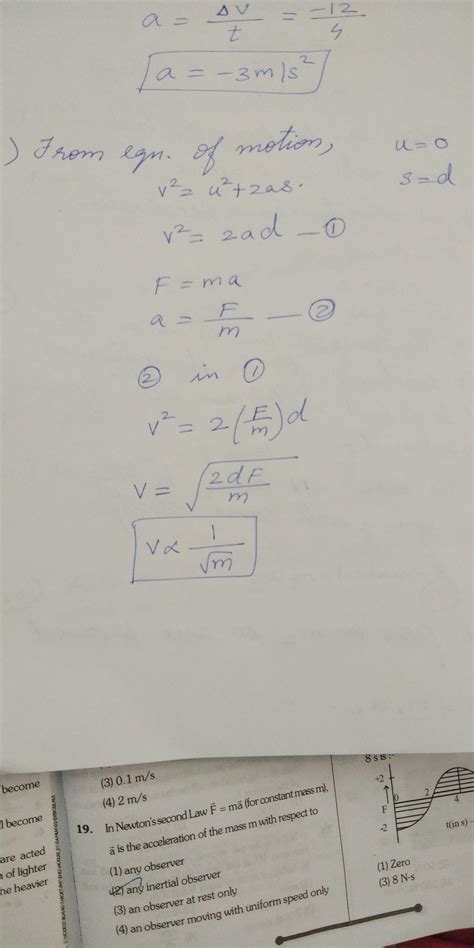 a = ΔV/t = -12/4
a = -3m/s²
) From eqn. of motion, u=0
v² = u²+2as. s=d
v² = 2ad — ①
F = ma
a = F/m — ②
② in ①
v² = 2(F/m)d
V = √(2dF/m)
V∝ 1/√m
become
l become
are acted
of lighter
he heavier
(3) 0.1 m/s
(4) 2 m/s
19. In Newton's second Law F⃗ = ma⃗ (for constant mass m),
a⃗ is the acceleration of the mass m with respect to
(1) any observer
(2) any inertial observer
(3) an observer at rest only
(4) an observer moving with uniform speed only
8 s is :
+2
F
0
2
4
-2
t(in s)
(1) Zero
(3) 8 N-s